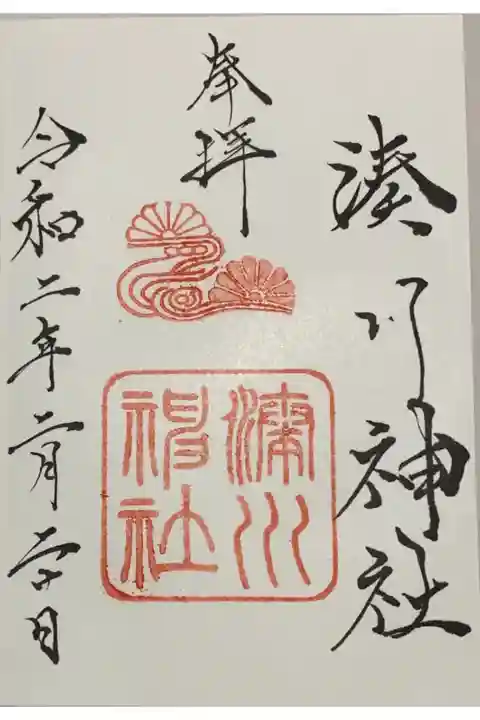 湊川神社
奉拝
湊川
神社
令和二年二月二十日